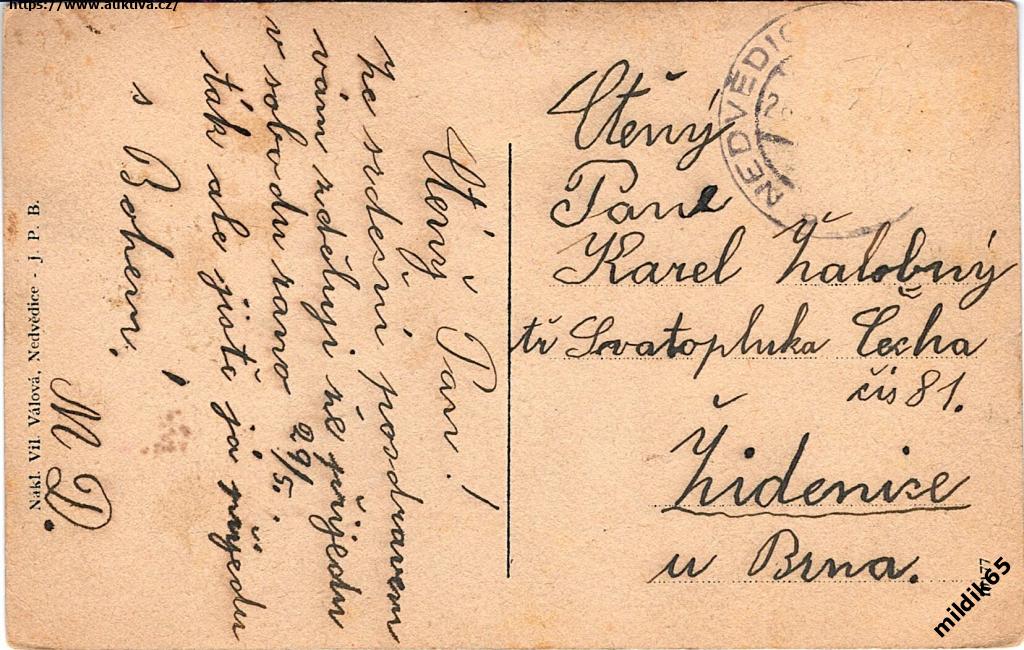 https://www.auktiva.cz/
Ctěný Pan!
ze srdeční posdravem
vám zděluji že přijedu
v sobodu rano 29/5.
ták ale jistě já přijedu
s Bohem!
M D.
Nákl. Vil. Válová, Nedvědice - J. P. B.
NEDVĚDIC
Ctěný
Pane
Karel Žalobný
tř Svatopluka Čecha
čís 81.
Židenice
u Brna.
mildik65